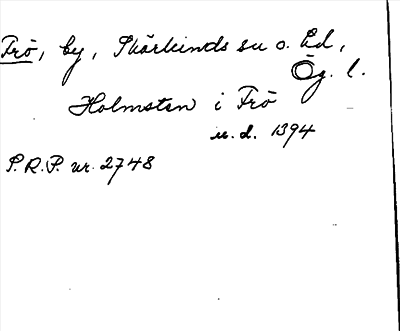 Frö, by, Skärkinds sn o. hd,
Ög. l.
Holmsten i Frö
u.d. 1394
S.R.P. nr. 2748